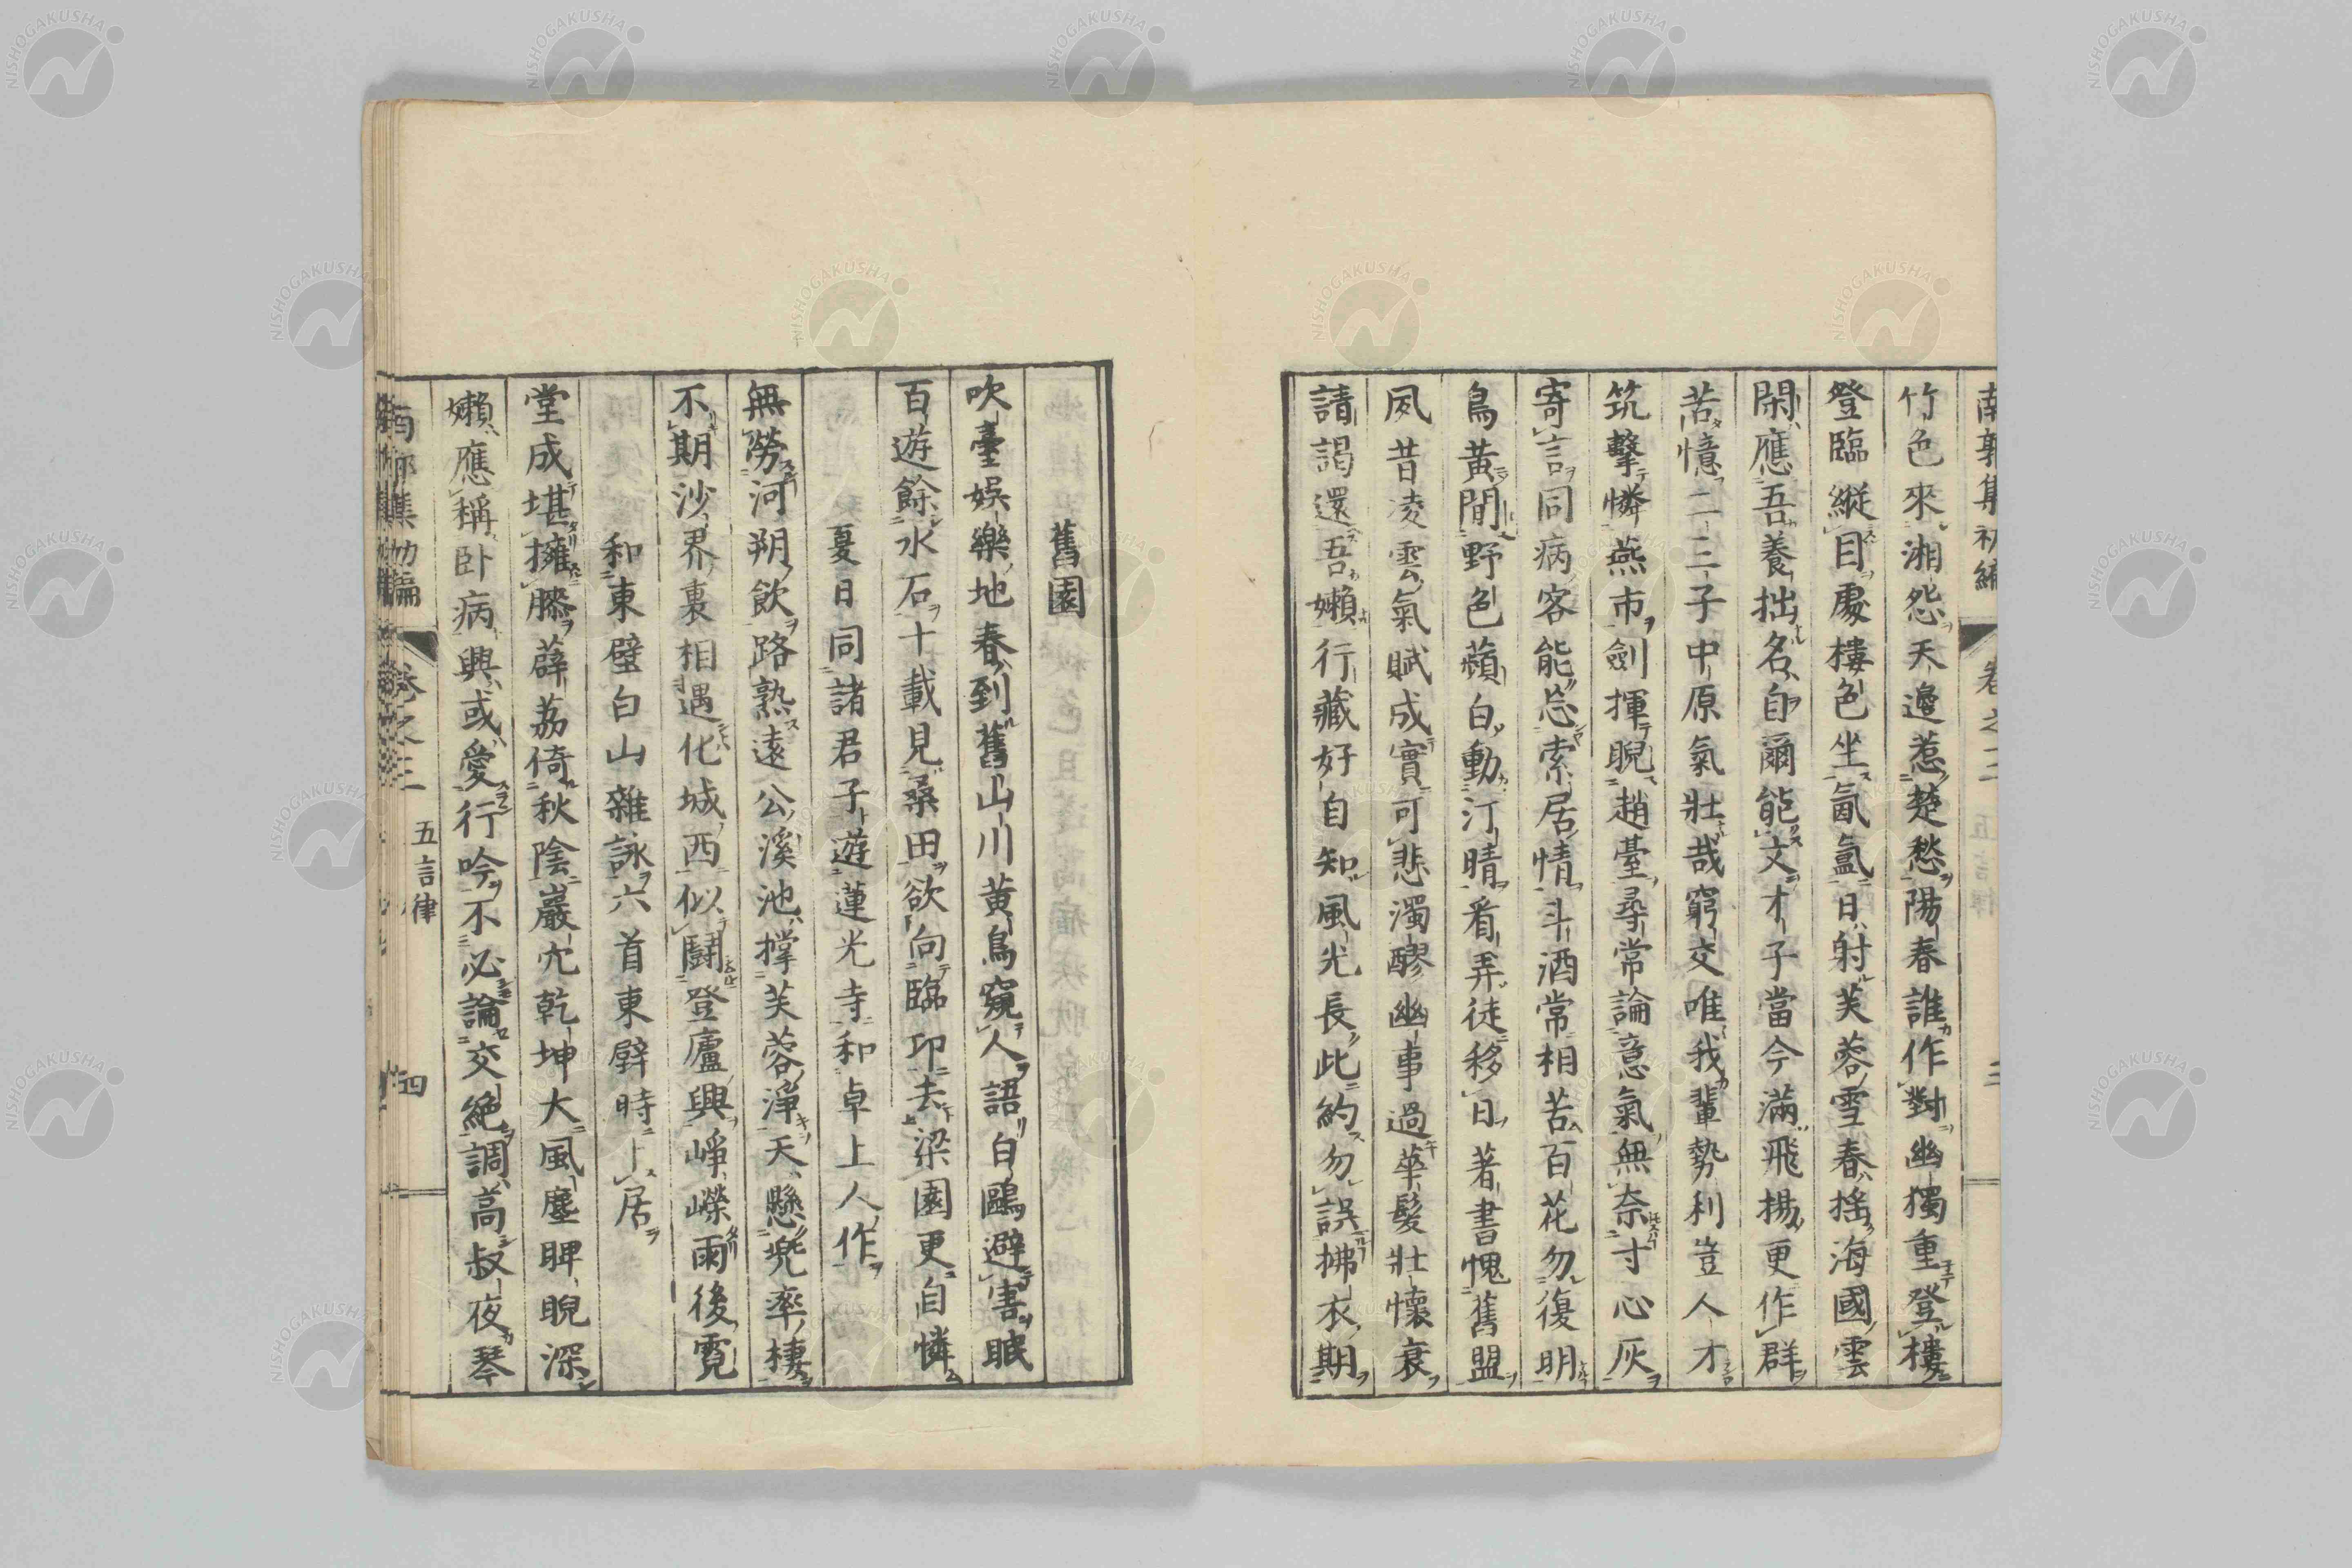 竹色來湘怨天邊惹楚愁陽春誰作對幽獨重登樓
登臨縱目處樓色坐氤氳日射芙蓉雪春搖海國雲
閑應吾養拙名自爾能文才子當今滿飛揚更作群
苦憶二三子中原氣壯哉窮交唯我輩勢利豈人才
筑擊憐燕市劍揮睨趙臺尋常論意氣無奈寸心灰
寄言同病客能忘索居情斗酒常相苦百花勿復明
鳥黃間野色蘋白動汀晴看弄徒移日著書愧舊盟
夙昔凌雲氣賦成實可悲濁醪幽事過華髮壯懷衰
請謁還吾嬾行藏好自知風光長此約勿誤拂衣期
舊園
吹臺娛樂地春到舊山川黃鳥窺人語白鷗避害眠
百遊餘水石十載見桑田欲向臨卭去梁園更自憐
夏日同諸君子遊蓮光寺和卓上人作
無勞河朔飲路熟遠公溪池撑芙蓉淨天懸兜率棲
不期沙界裏相遇化城西似鬪登廬興崢嶸雨後霓
和東壁白山雜詠六首東壁時上居
堂成堪擁膝薜荔倚秋陰巖穴乾坤大風塵睥睨深
嬾應稱卧病興或愛行吟不必論交絕調高叔夜琴
南郭集初編 卷之三 五言律 四
NISHOGAKUSHA